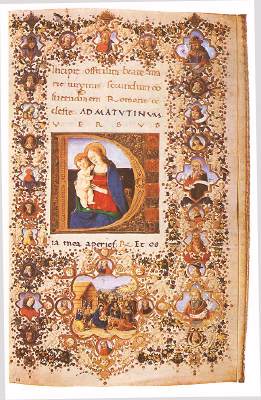 Incipit officium beate ma
rie virginis secundum co
suetudinem Romane ec
clesie. AD MATUTINUM
VERSUS
D
ia mea aperies. R. Et os